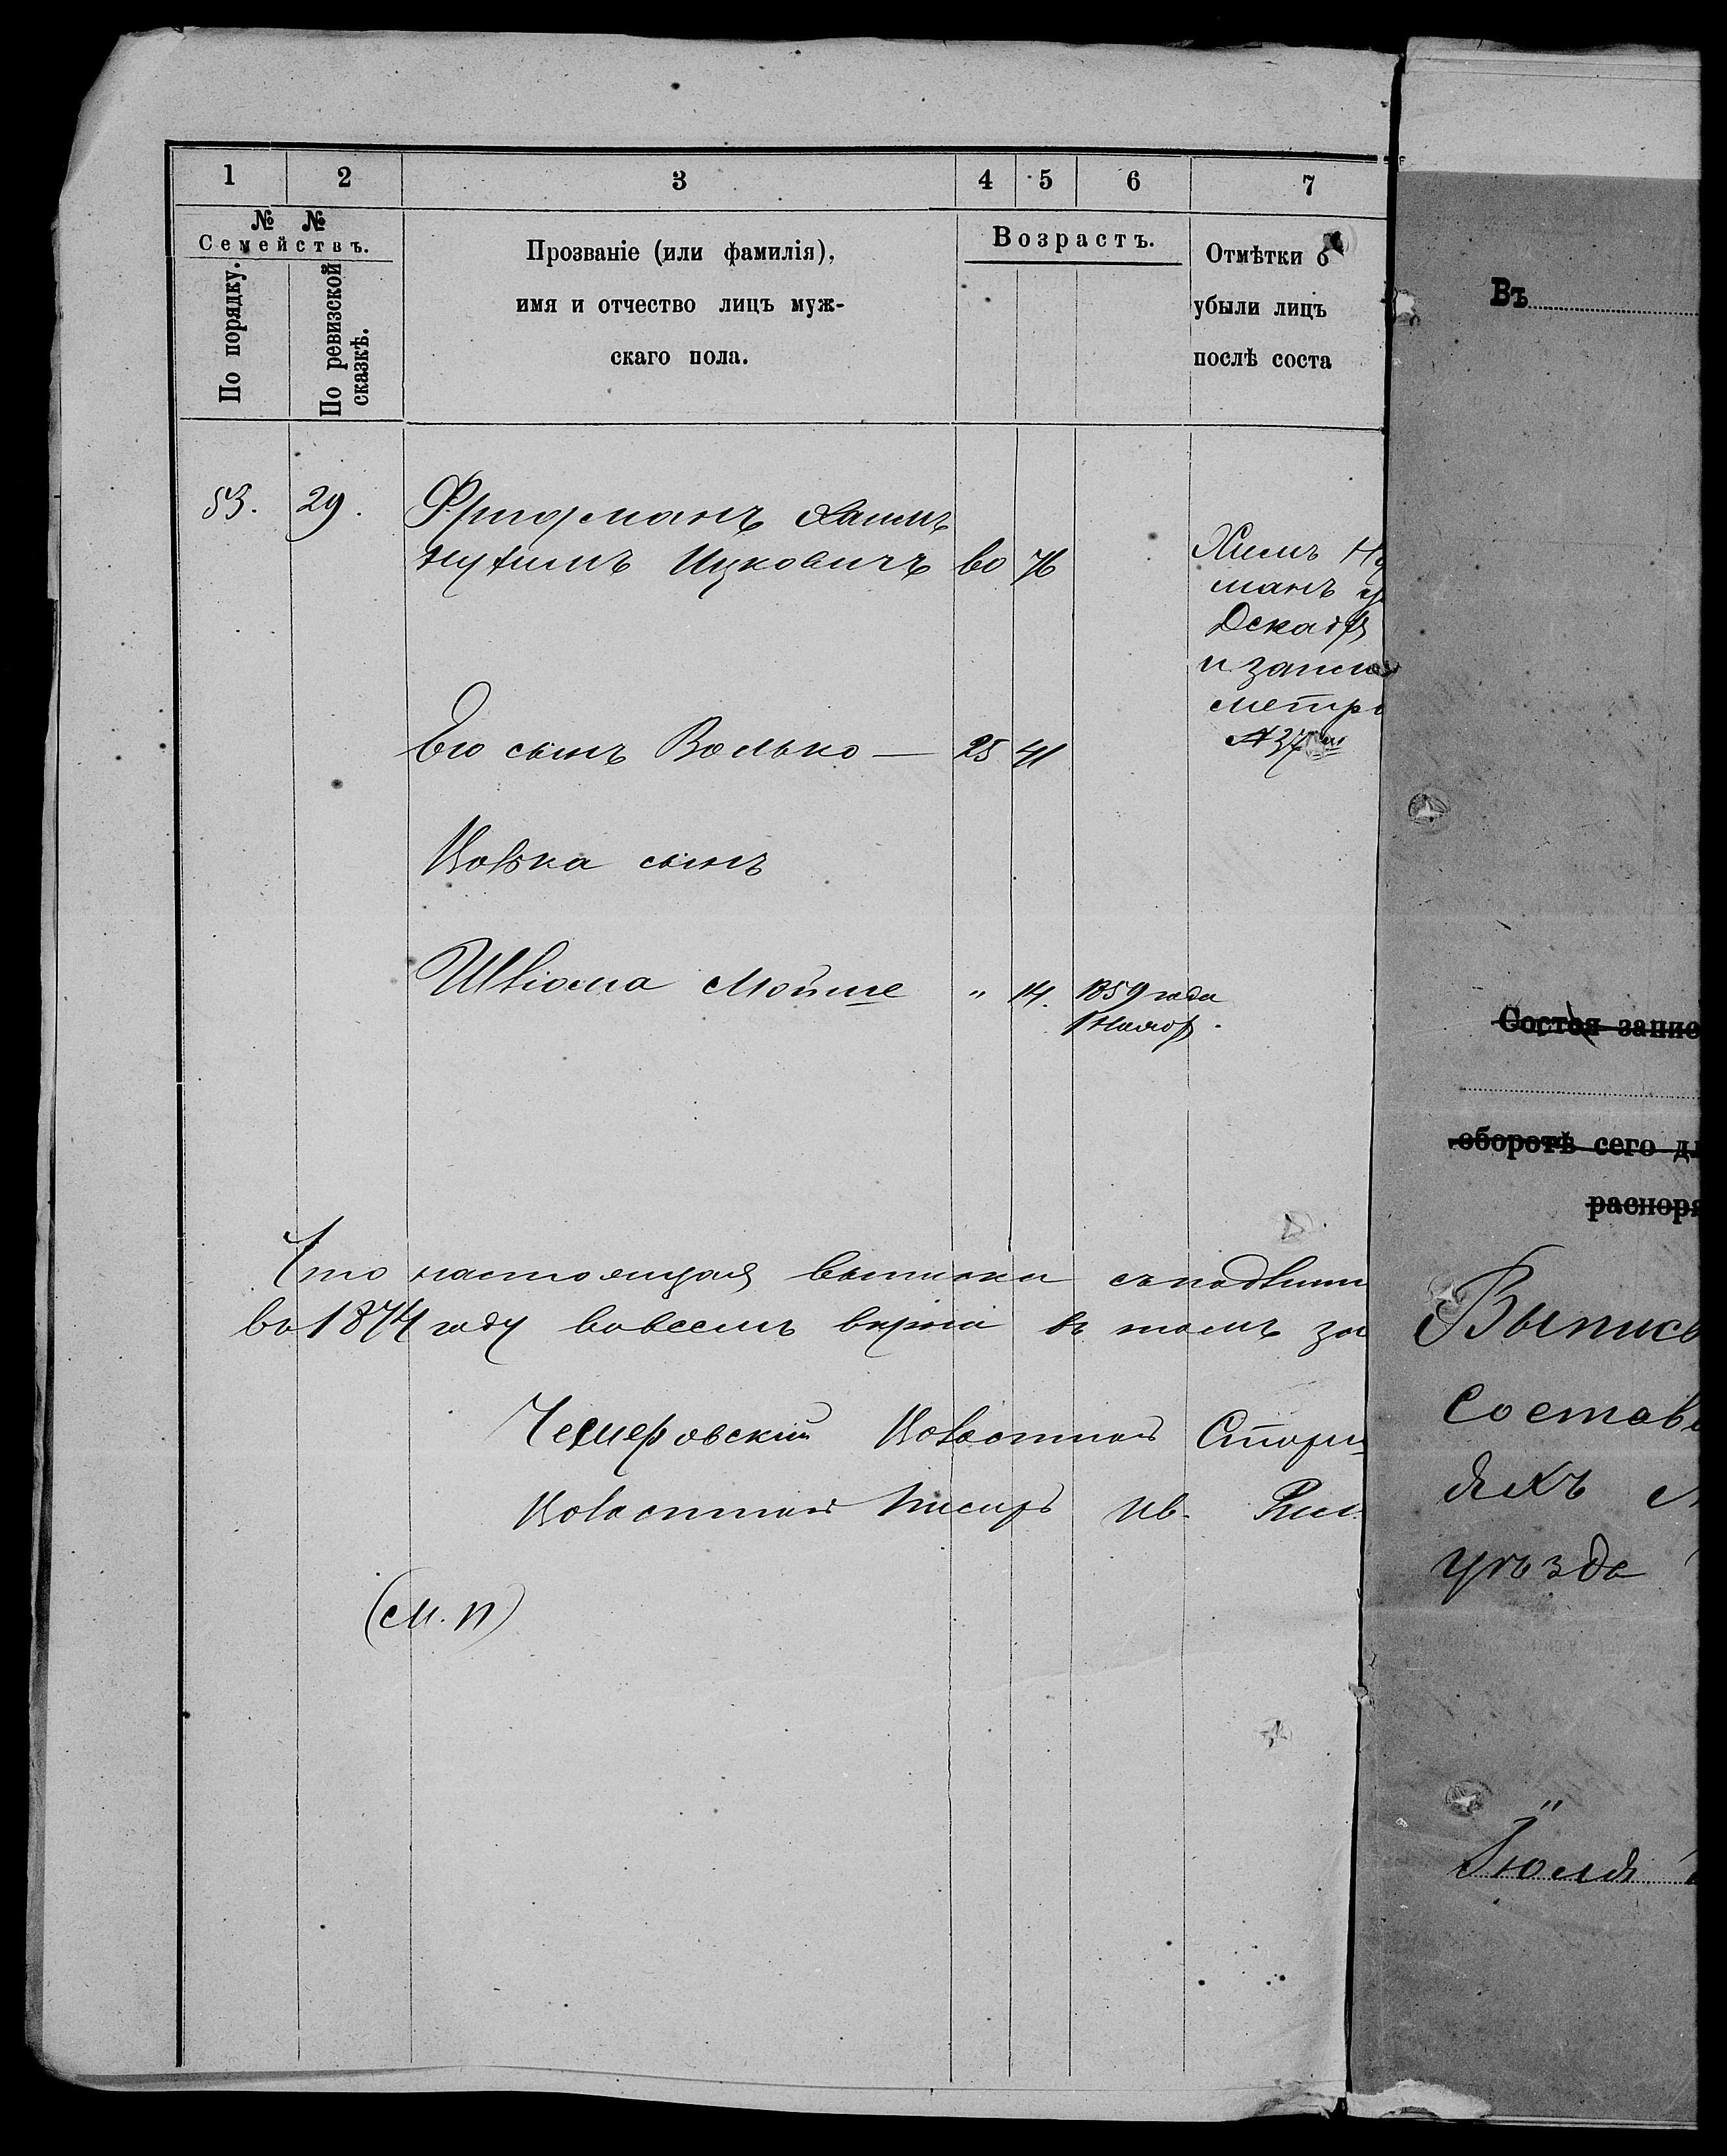 1 2 3 4 5 6 7
№ №
Семействъ.
По порядку.
По ревизской
сказкѣ.
Прозваніе (или фамилія),
имя и отчество лицъ муж-
скаго пола.
Возрастъ.
Отмѣтки о
убыли лицъ
послѣ соста
53. 29. Фридманъ Хаимъ
Нухимъ Ицковичъ 60 76
Хаимъ Ну
манъ
Декабр
и записа
метри
№ 37
Его сынъ Волько — 25 41
Волька сынъ
Шліома Мойше " 14. 1859 года
1 Нояб.
Что настоящая выписка съ
во 1874 году вовсемъ вѣрна въ томъ за
Чемеровскій Волостной Стари
Волостной писарь Ив.
(М. П)
Въ
Состоя запис
оборотѣ сего дл
распоря
Выпись
Состав
яхъ
уѣзда
"
Іюля